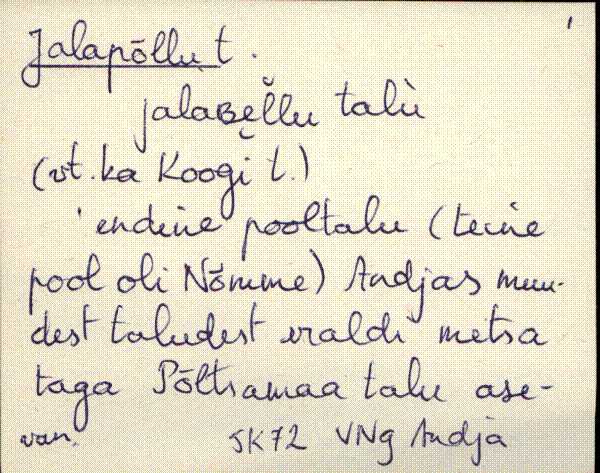 Jalapõllu t.
jalaʙĕ̬llu talù
(vt. ka Koogi t.)
'endine pooltalu (teine
pool oli Nõmme) Andjas muu-
dest taludest eraldi metsa
taga Põltsamaa talu ase-
van.
SK72 VNg Andja